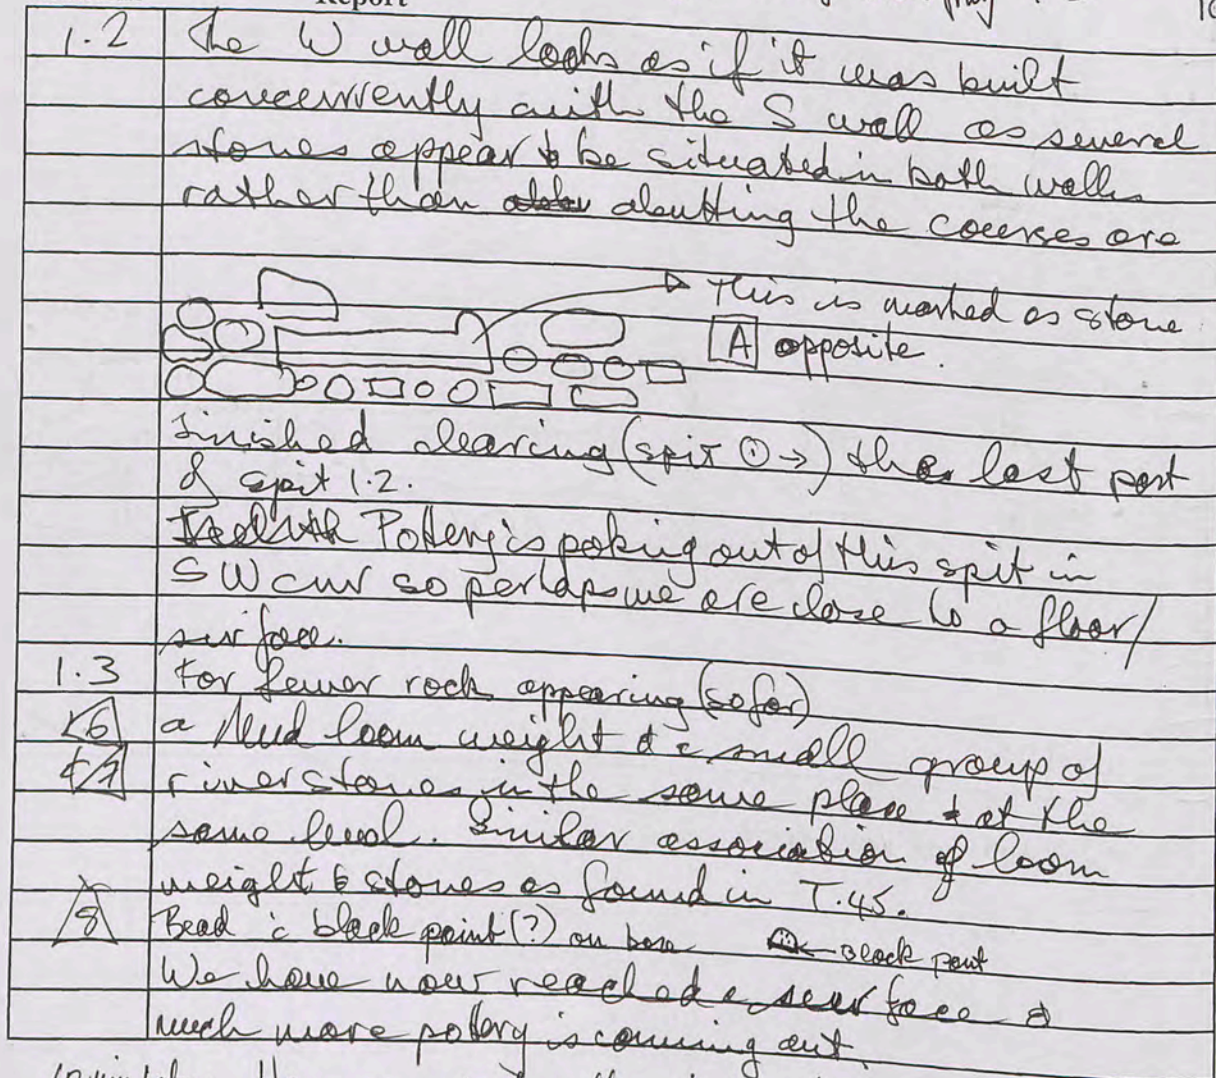 Report
1.2 The W wall looks as if it was built
concurrently with the S wall as several
stones appear to be situated in both walls
rather than abutting the courses are
This is marked as stone
A opposite.
Finished clearing (spit ① →) the last part
of spit 1.2.
Pottery is poking out of this spit in
SW cnr so perhaps we are close to a floor/
surface.
1.3 Far fewer rock appearing (so far)
6 a Mud loom weight & a small group of
+ 7 river stones in the same place + at the
same level. Similar association of loom
weight & stones as found in T.45.
8 Bead c̄ black paint (?) on base ← Black paint
We have now reached a surface &
much more pottery is coming out.